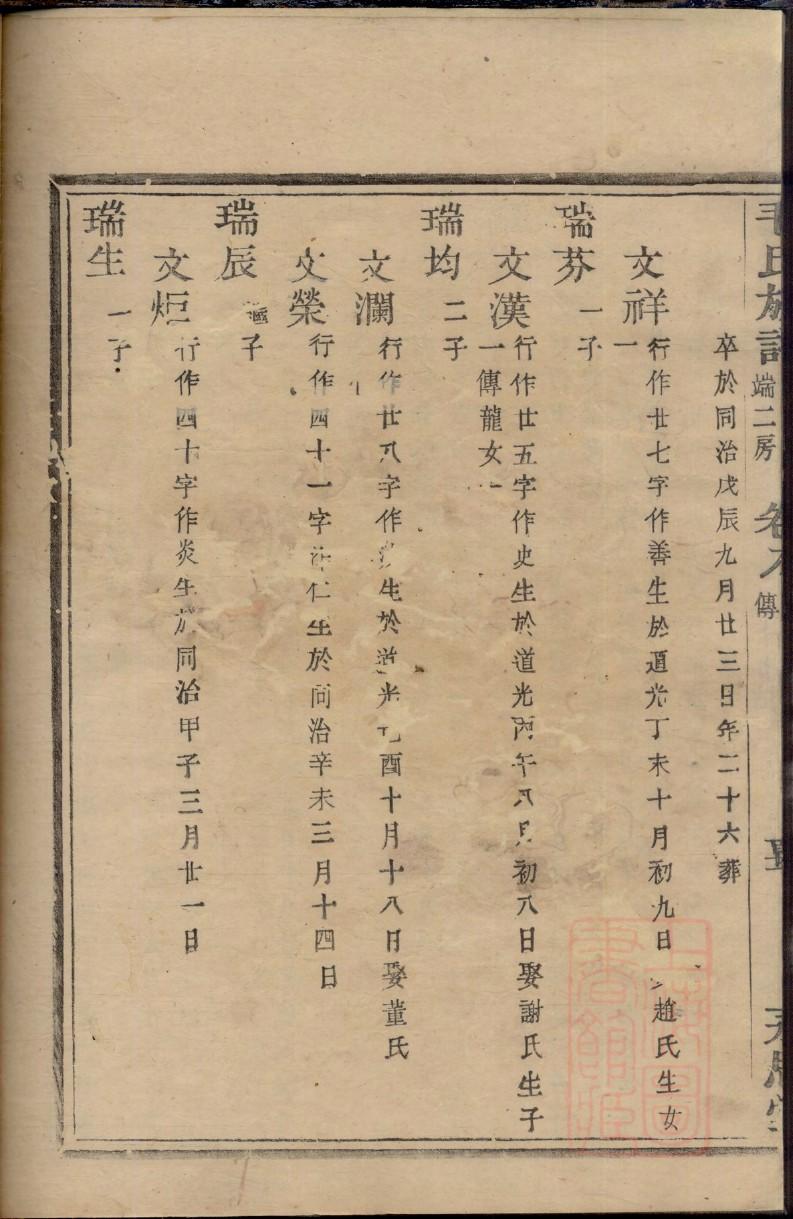 毛氏族譜 端二房 卷 傳
卒於同治戊辰九月廿三日年二十六葬
文祥行作廿七字作善生於道光丁未十月初九日 趙氏生女
一
瑞芬 一子
文漢行作廿五字作史生於道光丙午八月初八日娶謝氏生子
一傳龍女一
瑞均 二子
文瀾行作廿八字作 生於道光 酉十月十八日娶董氏
文榮行作四十一字作仁生於同治辛未三月十四日
瑞辰 子
文炬行作四十字作炎生於同治甲子三月廿一日
瑞生 一子
上海圖書館藏